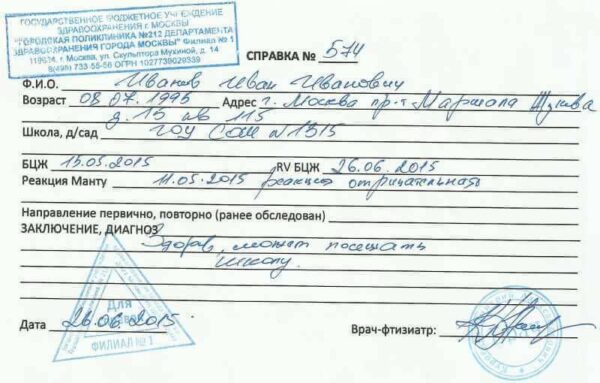 ГОСУДАРСТВЕННОЕ БЮДЖЕТНОЕ УЧРЕЖДЕНИЕ
ЗДРАВООХРАНЕНИЯ г. МОСКВЫ
"ГОРОДСКАЯ ПОЛИКЛИНИКА №212 ДЕПАРТАМЕНТА
ЗДРАВООХРАНЕНИЯ ГОРОДА МОСКВЫ" Филиал № 1
г. Москва, ул. Скульптора Мухиной, д. 14
СПРАВКА № 574
Ф.И.О. Иванов Иван Иванович
Возраст 08.07.1995 Адрес г. Москва пр-т Маршала Жукова
д. 15 кв 115
Школа, д/сад ГОУ СОШ N 1315
БЦЖ 15.05.2015 RV БЦЖ 26.06.2015
Реакция Манту 11.05.2015 реакция отрицательная
Направление первично, повторно (ранее обследован)
ЗАКЛЮЧЕНИЕ, ДИАГНОЗ
Здоров, может посещать
школу.
Для
Дата 26.06.2015
ФИЛИАЛ № 1
Врач-фтизиатр: